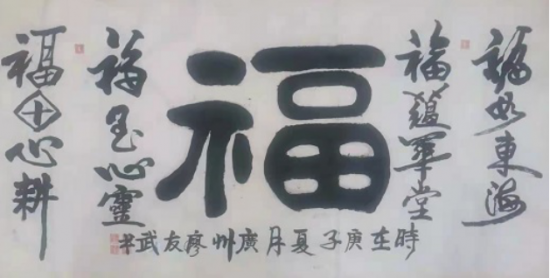 福如東海
福蘊華堂
福
福至心靈
福田心耕
時在庚子夏月廣州廖友武书